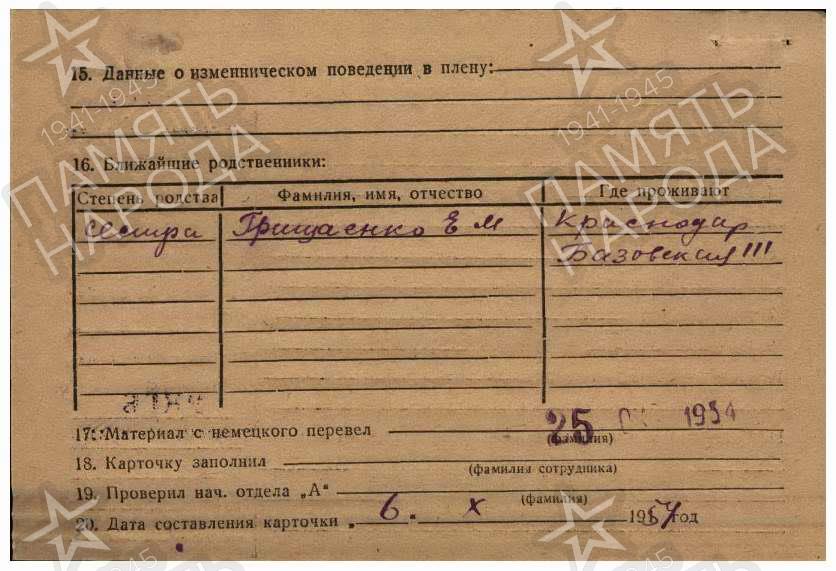 15. Данные о изменническом поведении в плену:
16. Ближайшие родственники:
Степень родства Фамилия, имя, отчество Где проживают
сестра Грищаенко Е М Краснодар
Базовская 111
17. Материал с немецкого перевел 25 1954
(фамилия)
18. Карточку заполнил
(фамилия сотрудника)
19. Проверил нач. отдела „А“
(фамилия)
20. Дата составления карточки „ 6. X 1954 год
1941-1945
ПАМЯТЬ
НАРОДА
1941-1945
ПАМЯТЬ
НАРОДА